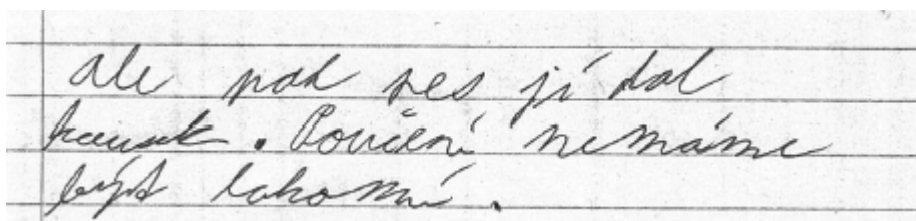 ale pak pes jí dal
kousek. Poučení nemáme
být lakomí.